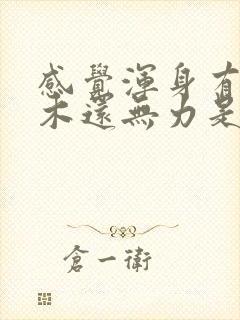 感覺渾身有
木還無力是
倉一衛